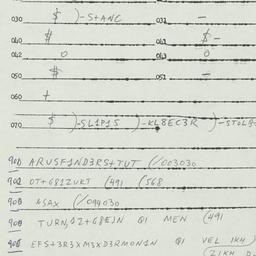 030 $ )-STANC 031 —
040 # 041 $ -
042 0 043 0
050 # 051 —
060 +
070 $ )-SL1P1S )-KL8EC3R )-STOL
901 ARUSF1ND3RS+TUT (/003030
902 OT+6812UKT (491 (568
903 NSAX (/099030
904 TURN,12+68E1N Q1 MEN (491
EFS+3R3XM3XD3RMON1N Q1 VEL 1KH)
(21KH D